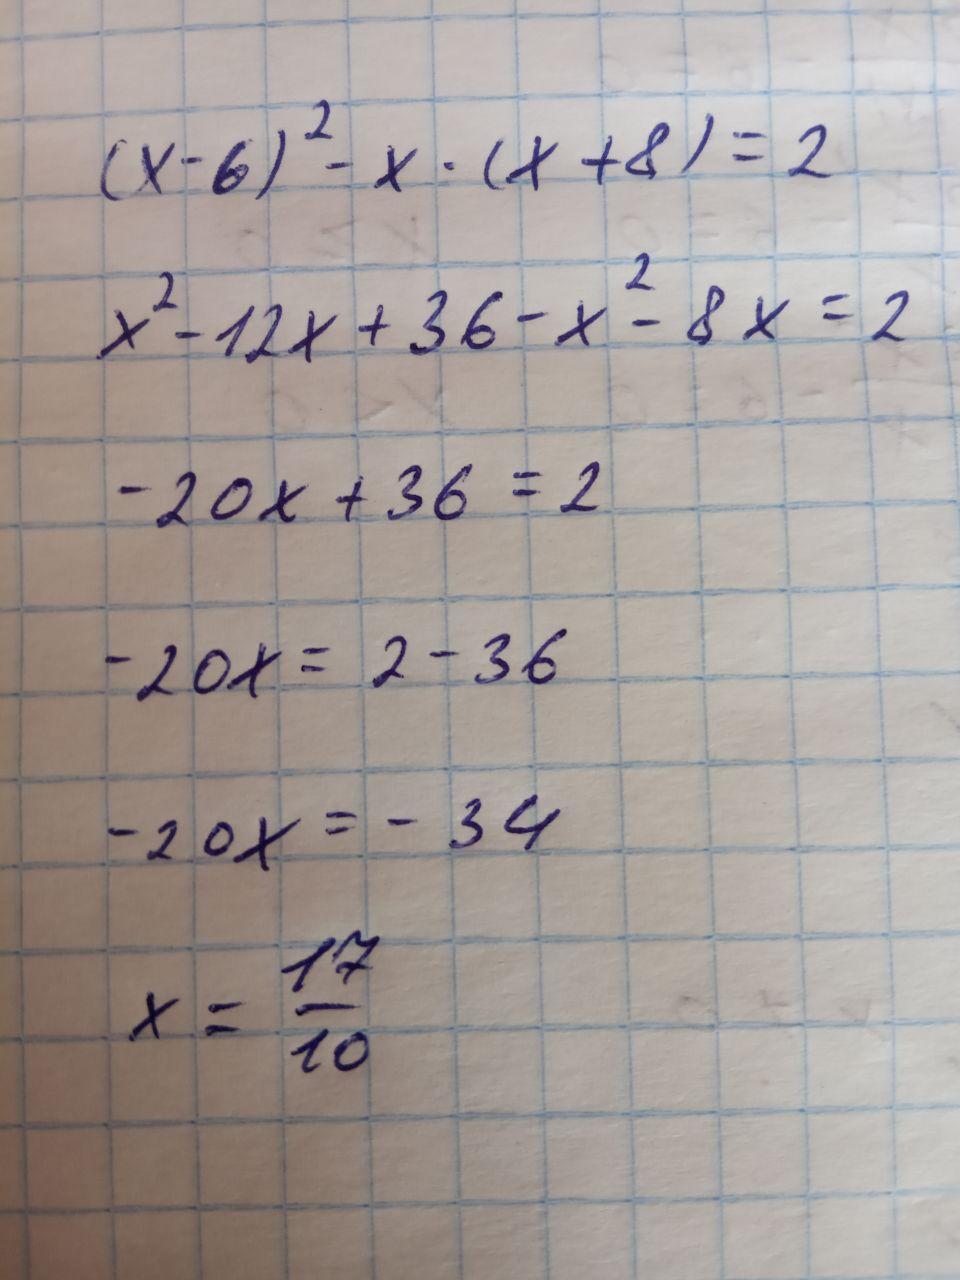 (x-6)² - x · (x+8) = 2
x² - 12x + 36 - x² - 8x = 2
-20x + 36 = 2
-20x = 2 - 36
-20x = - 34
x = 17/10